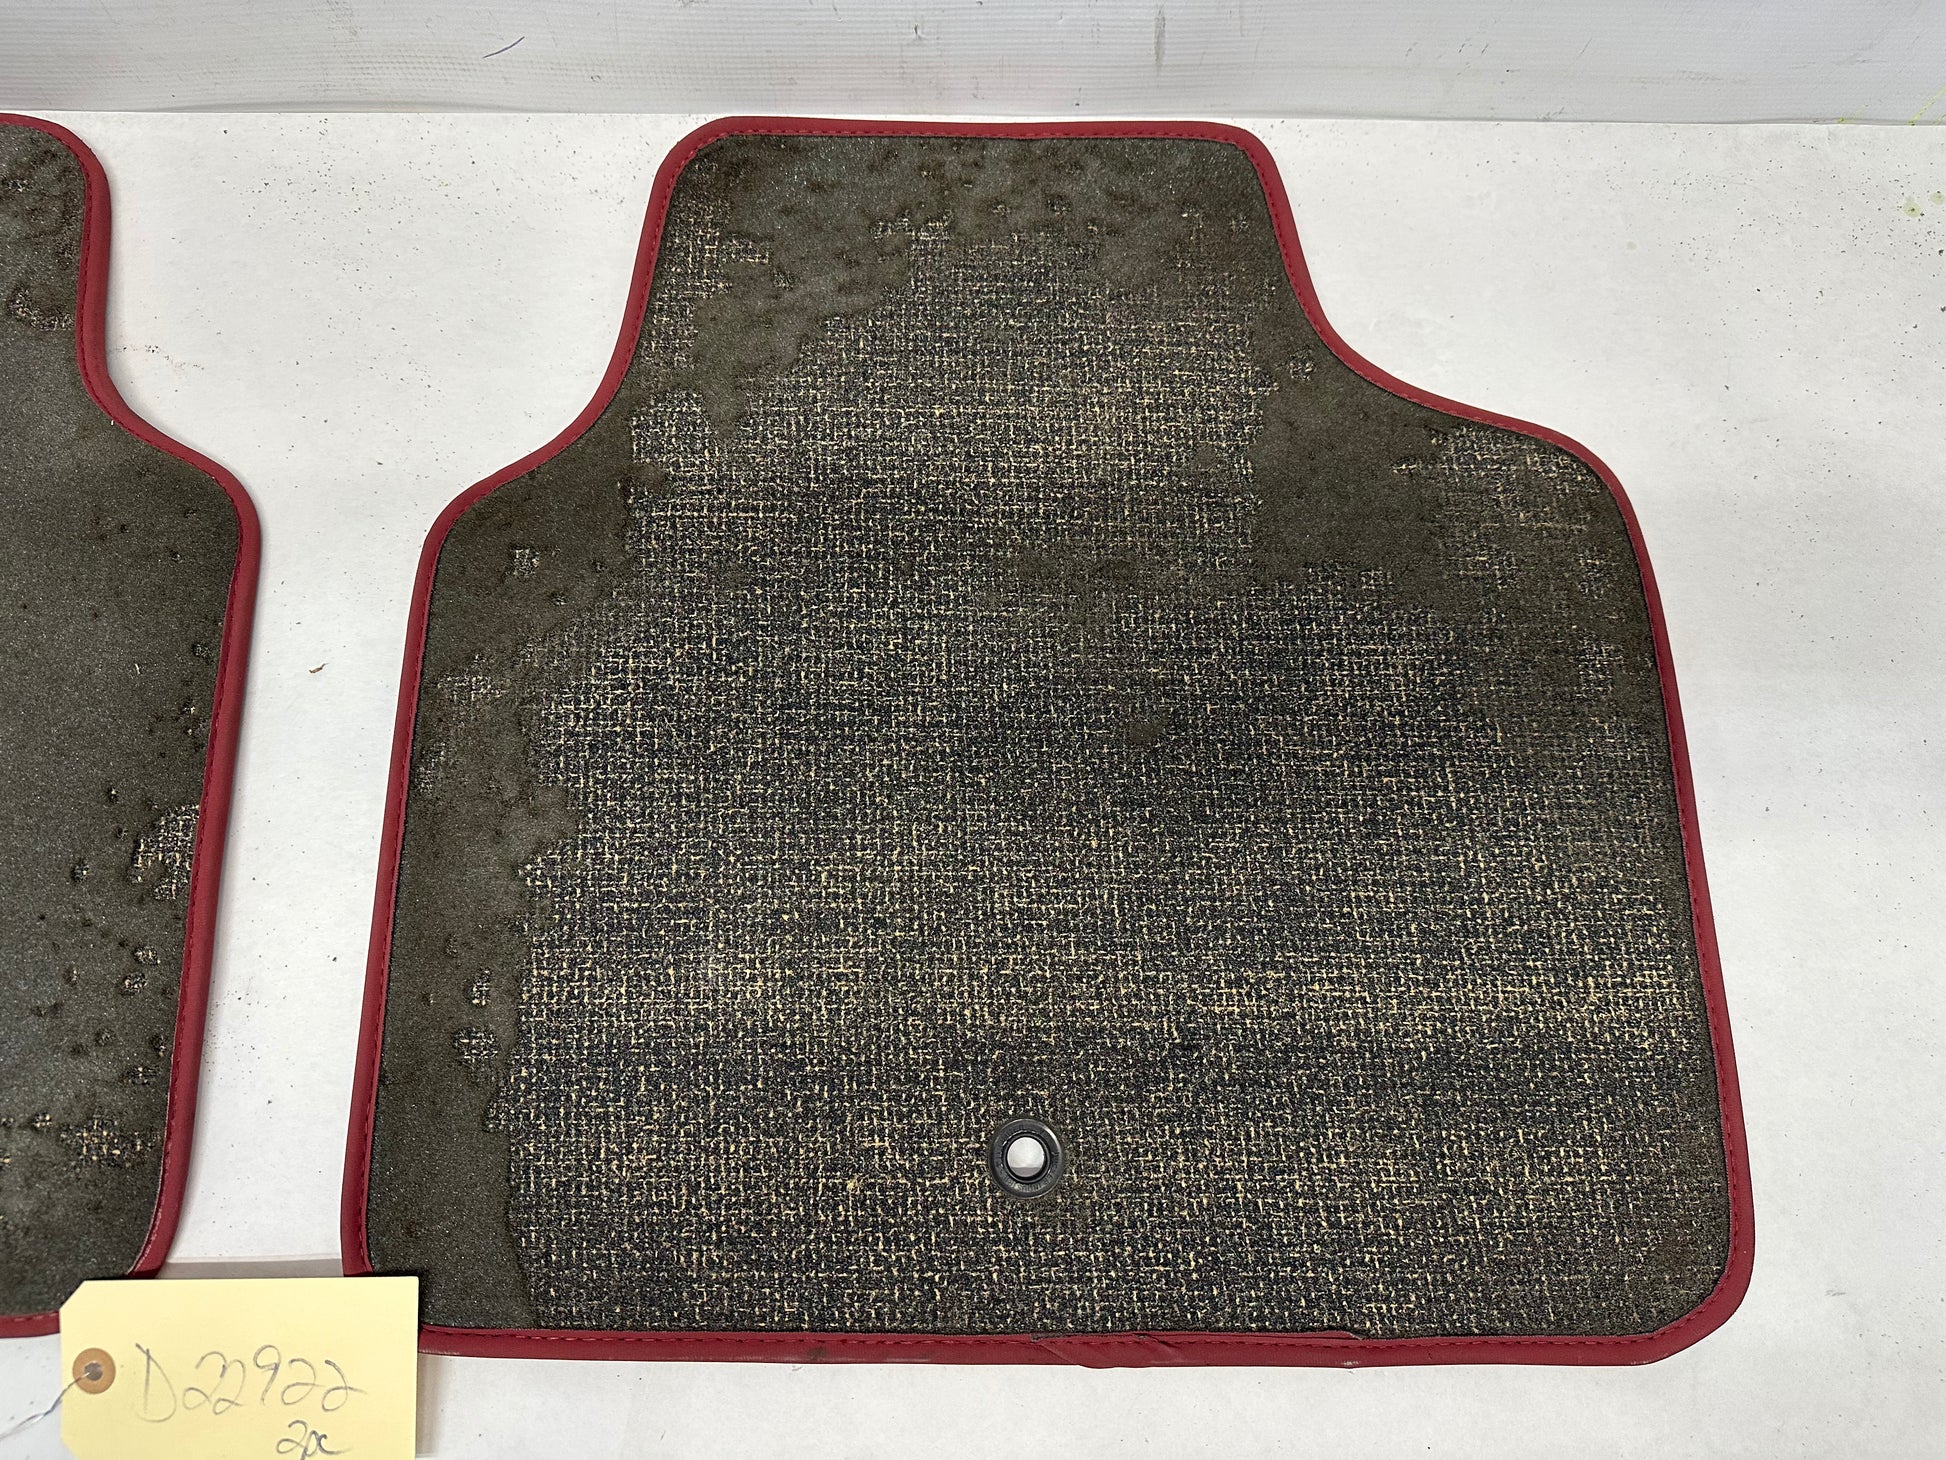 D22922
2pc